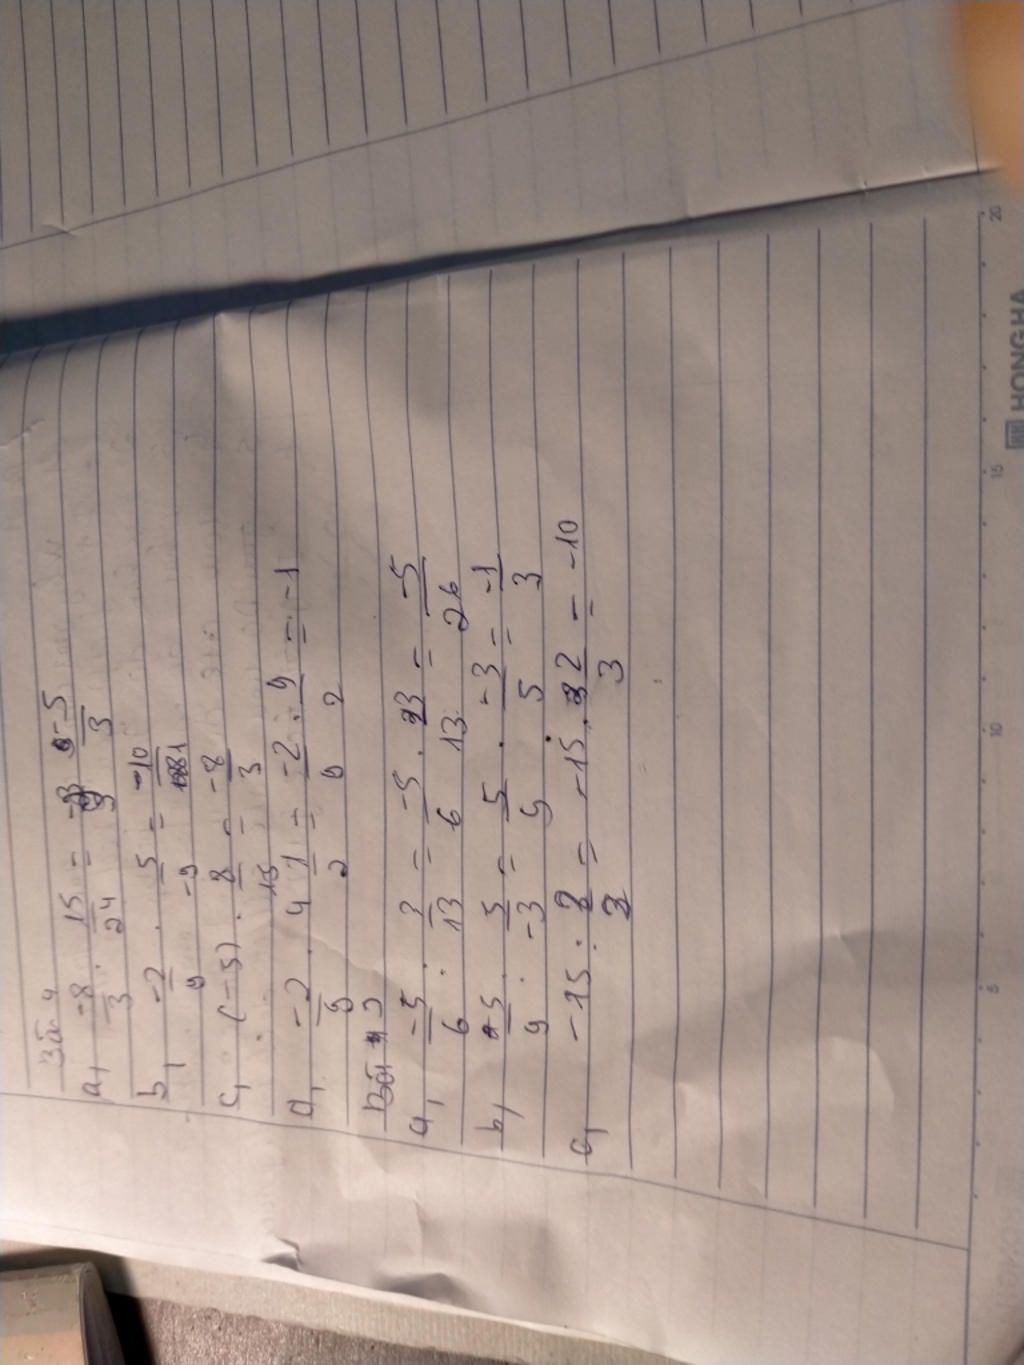 Bài 4
a, -8/3 . 15/24 = -5/3
b, -2/9 . 5/-9 = -10/81
c, (-5) . 8/15 = -8/3
d, -2/9 . 4 1/2 = -2/9 . 9/2 = -1
Bài
a, -5/6 : 13/3 = -5/6 . 3/13 = -5/26
b, 5/9 : 5/-3 = 5/9 . -3/5 = -1/3
c, -15 : 3/2 = -15 . 2/3 = -10
HONG HA
5 10 15 20